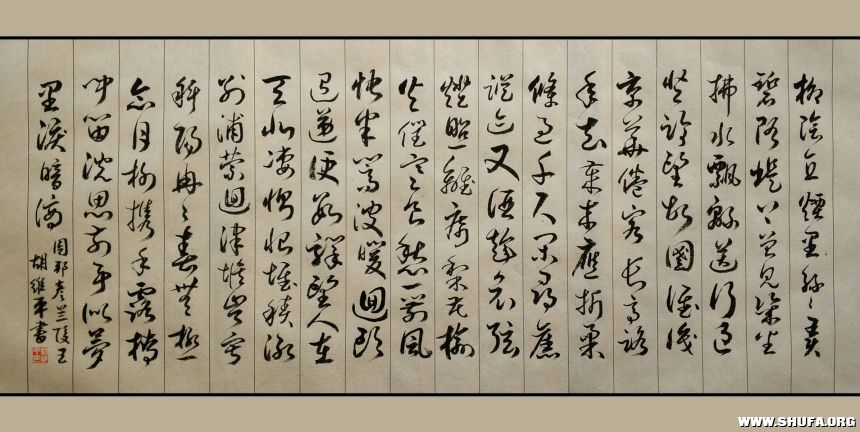 柳陰直煙里絲〻弄
碧隋堤上曾見幾番
拂水飄緜送行色
登臨望故國誰識
京華倦客长亭路
年去歲來應折柔
條過千尺闲尋舊
蹤迹又酒趁哀弦
燈照離席梨花榆
火催寒食愁一箭風
快半篙波暖迴頭
迢遞便數驛望人在
天北凄恻恨堆積漸
别浦萦迴津堠岑寂
斜陽冉〻春無極
念月榭携手露橋
闻笛沉思前事似夢
里淚暗滴
周邦彦兰陵王
胡維平書
WWW.SHUFA.ORG